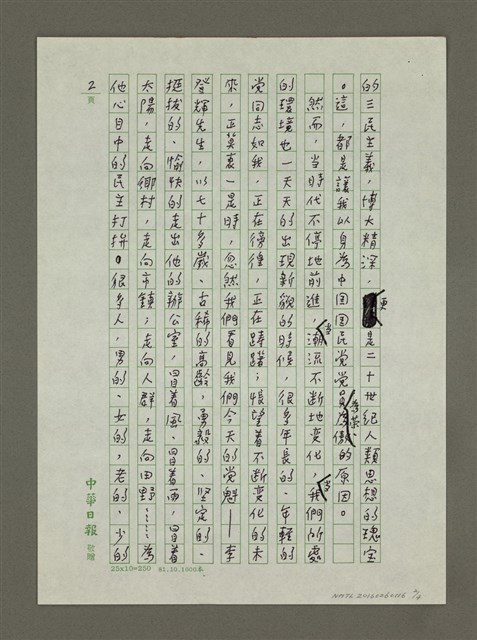 的三民主義，博大精深，更是二十世紀人類思想的瑰宝
。這，都是讓我以身為中国国民党党員為榮為傲的原因。
然而，当時代不停地前進，当潮流不断地变化，当我們所處
的環境也一天天的出現新貌的时候，很多年長的、年輕的
党同志如我，正在徬徨，正在踌躇；悵望着不断变化的未
來，正莫衷一是時，忽然我們看見我們今天的党魁——李
登輝先生，以七十多歲、古稀的高齡，勇毅的、坚定的、
挺拔的、愉快的走出他的辦公室，冒着風、冒着雨，冒着
太陽，走向鄉村，走向市鎮；走向人群，走向田野……為
他心目中的民主打拚。很多人，男的、女的，老的、少的
2頁
中華日報 敬贈
25x10=250 81.10.1000本
NMTL20160060116 2/4